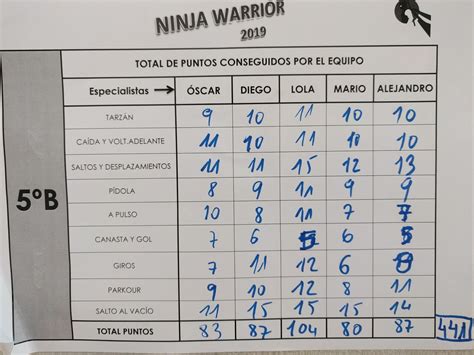 NINJA WARRIOR
2019
TOTAL DE PUNTOS CONSEGUIDOS POR EL EQUIPO
Especialistas → ÓSCAR DIEGO LOLA MARIO ALEJANDRO
TARZÁN 9 10 11 10 10
CAÍDA Y VOLT.ADELANTE 11 10 11 10 10
SALTOS Y DESPLAZAMIENTOS 11 11 15 12 13
5ºB
PÍDOLA 8 9 11 9 9
A PULSO 10 8 11 7 7
CANASTA Y GOL 7 6 6 5
GIROS 7 11 12 6 8
PARKOUR 9 10 12 8 11
SALTO AL VACÍO 11 15 15 15 14
TOTAL PUNTOS 83 87 104 80 87 441